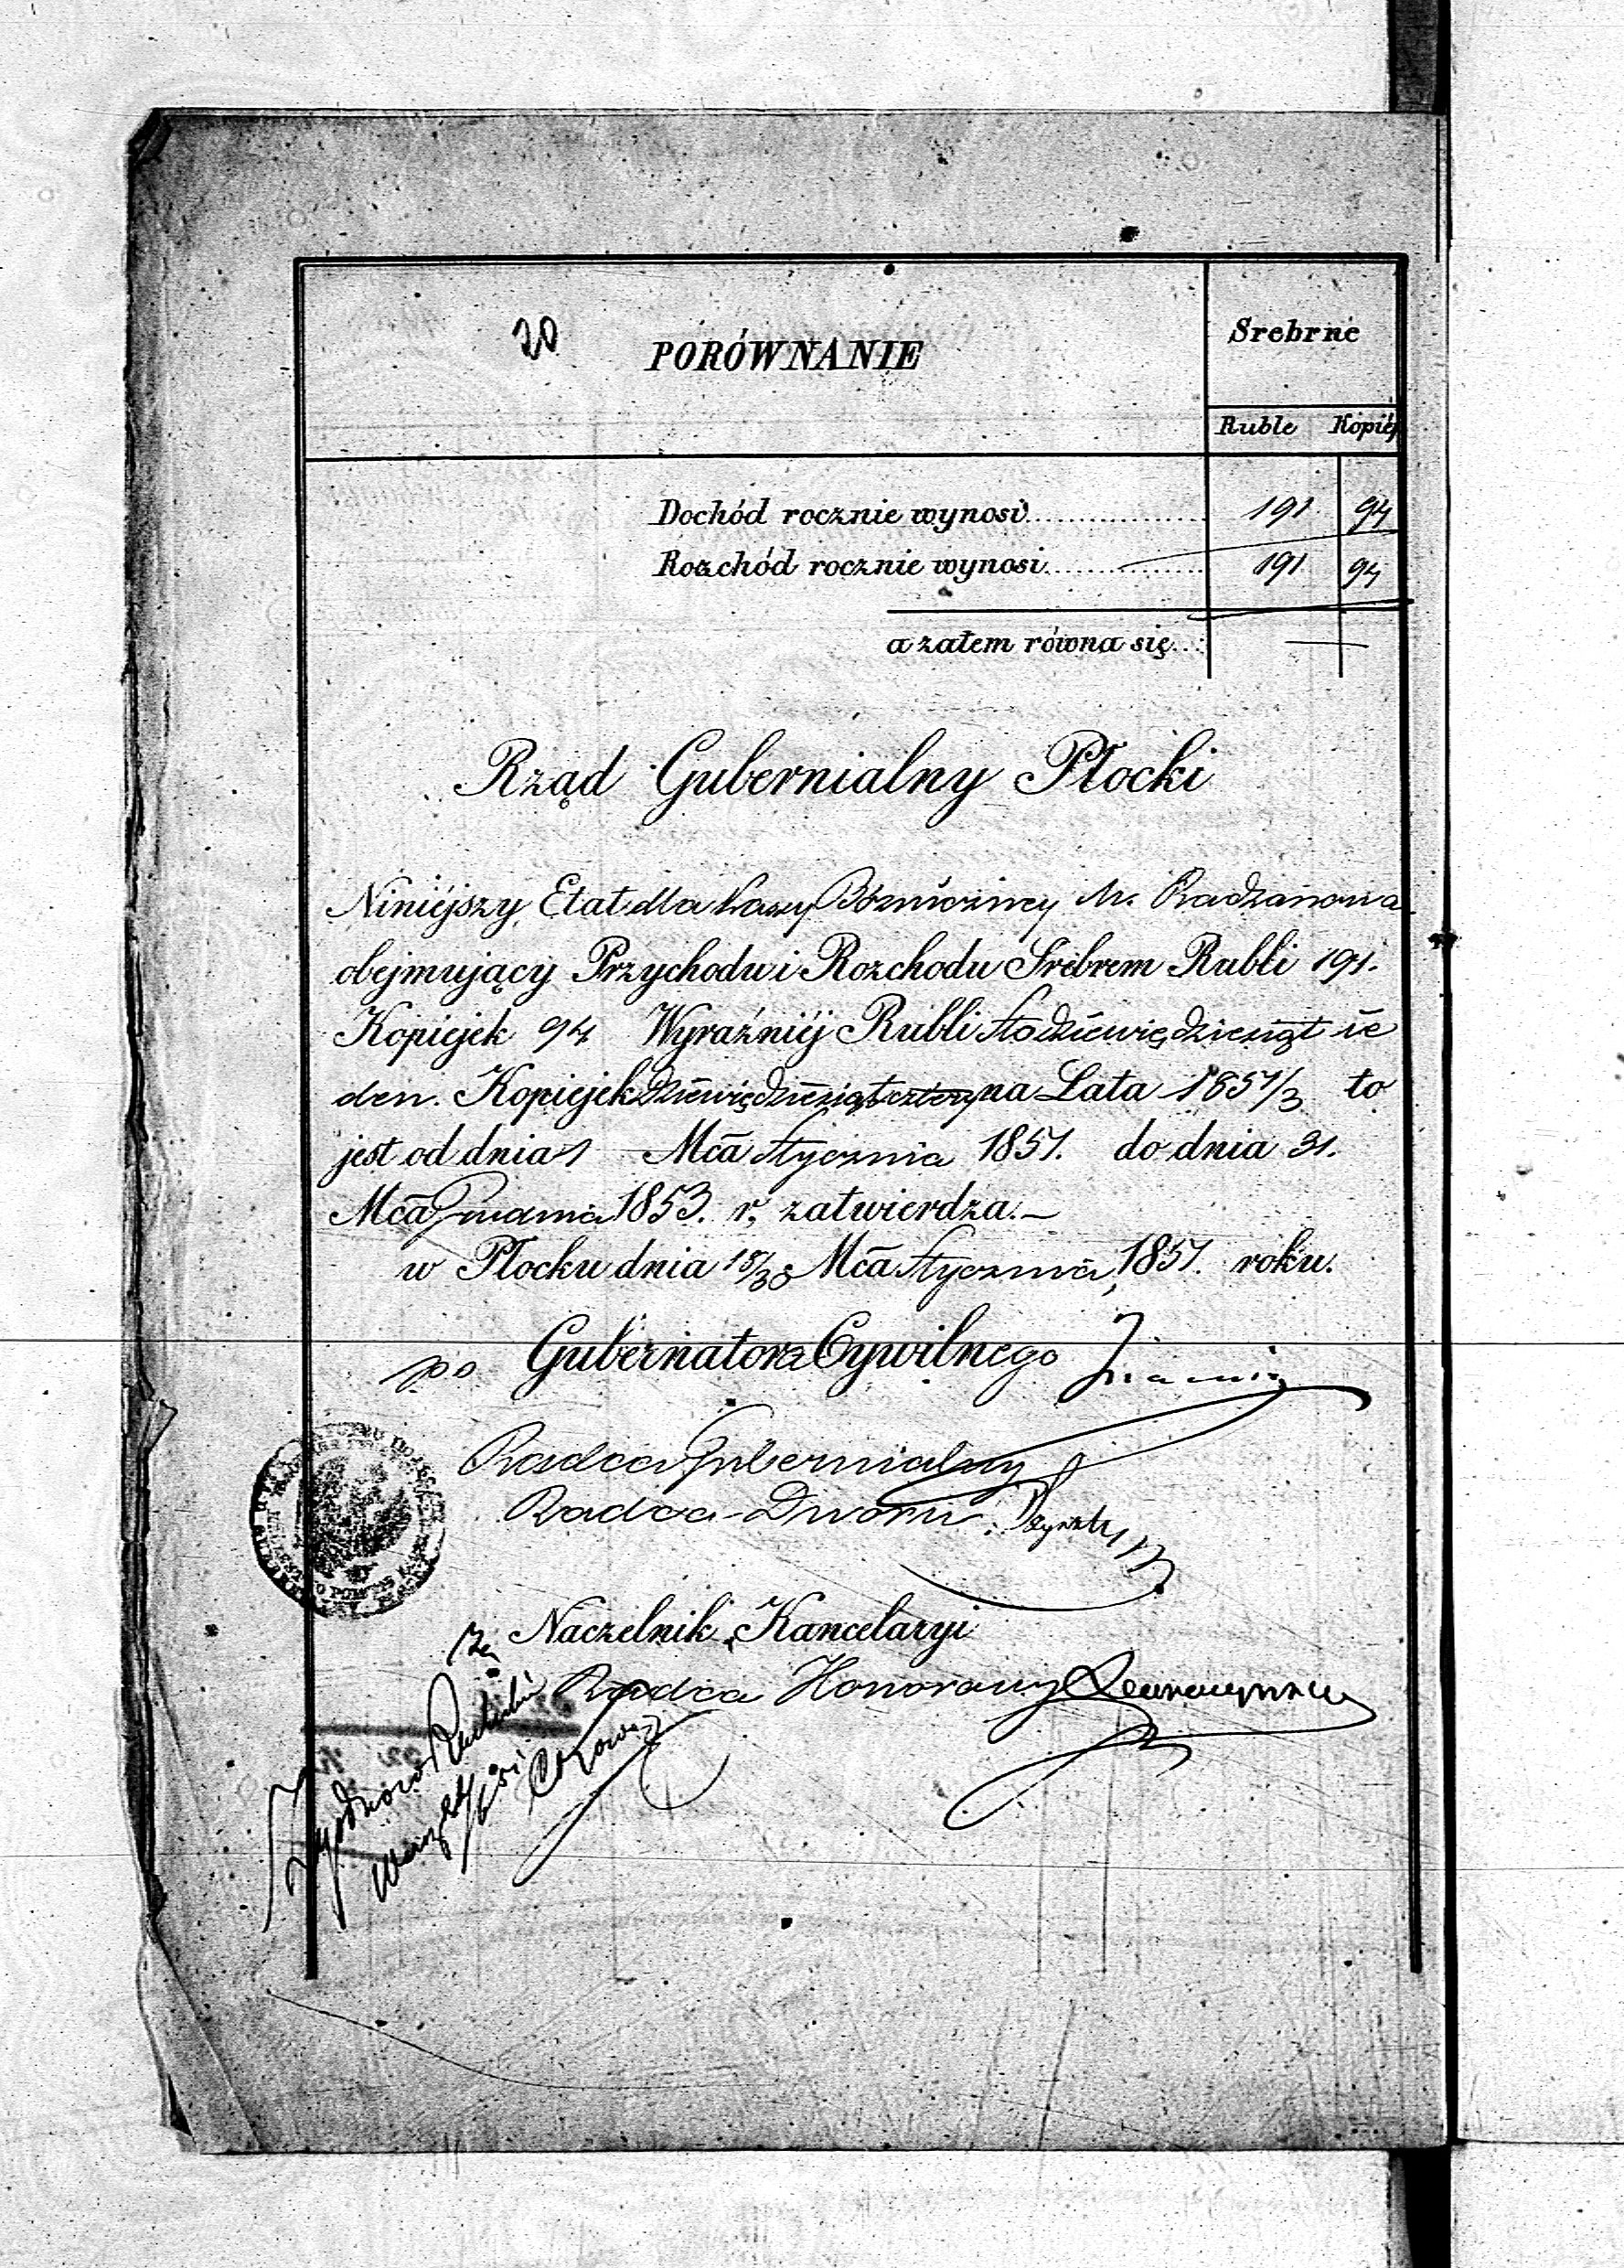 20
PORÓWNANIE
Srebrne
Ruble Kopiéj
Dochód rocznie wynosi 191 94
Rozchód rocznie wynosi 191 94
a zatem równa się
Rząd Gubernialny Płocki
Niniéjszy Etat dla Kassy Bóżniczney M. Radzanowa
obejmujący Przychodu i Rozchodu Srebrem Rubli 191.
Kopiejek 94 Wyraźniéj Rubli Stodziewiędziesiąt ie
den. Kopiejek Dziewiędziesiąt cztery na Lata 1851/3 to
jest od dnia 1 Mca Stycznia 1851. do dnia 31.
Mca Grudnia 1853. r. zatwierdza.—
w Płocku dnia 18/30 Mca Stycznia 1851. roku.
po Gubernatora Cywilnego
Radca Gubernialny
Radca Dworu
Naczelnik Kancelaryi
Radca Honorowy